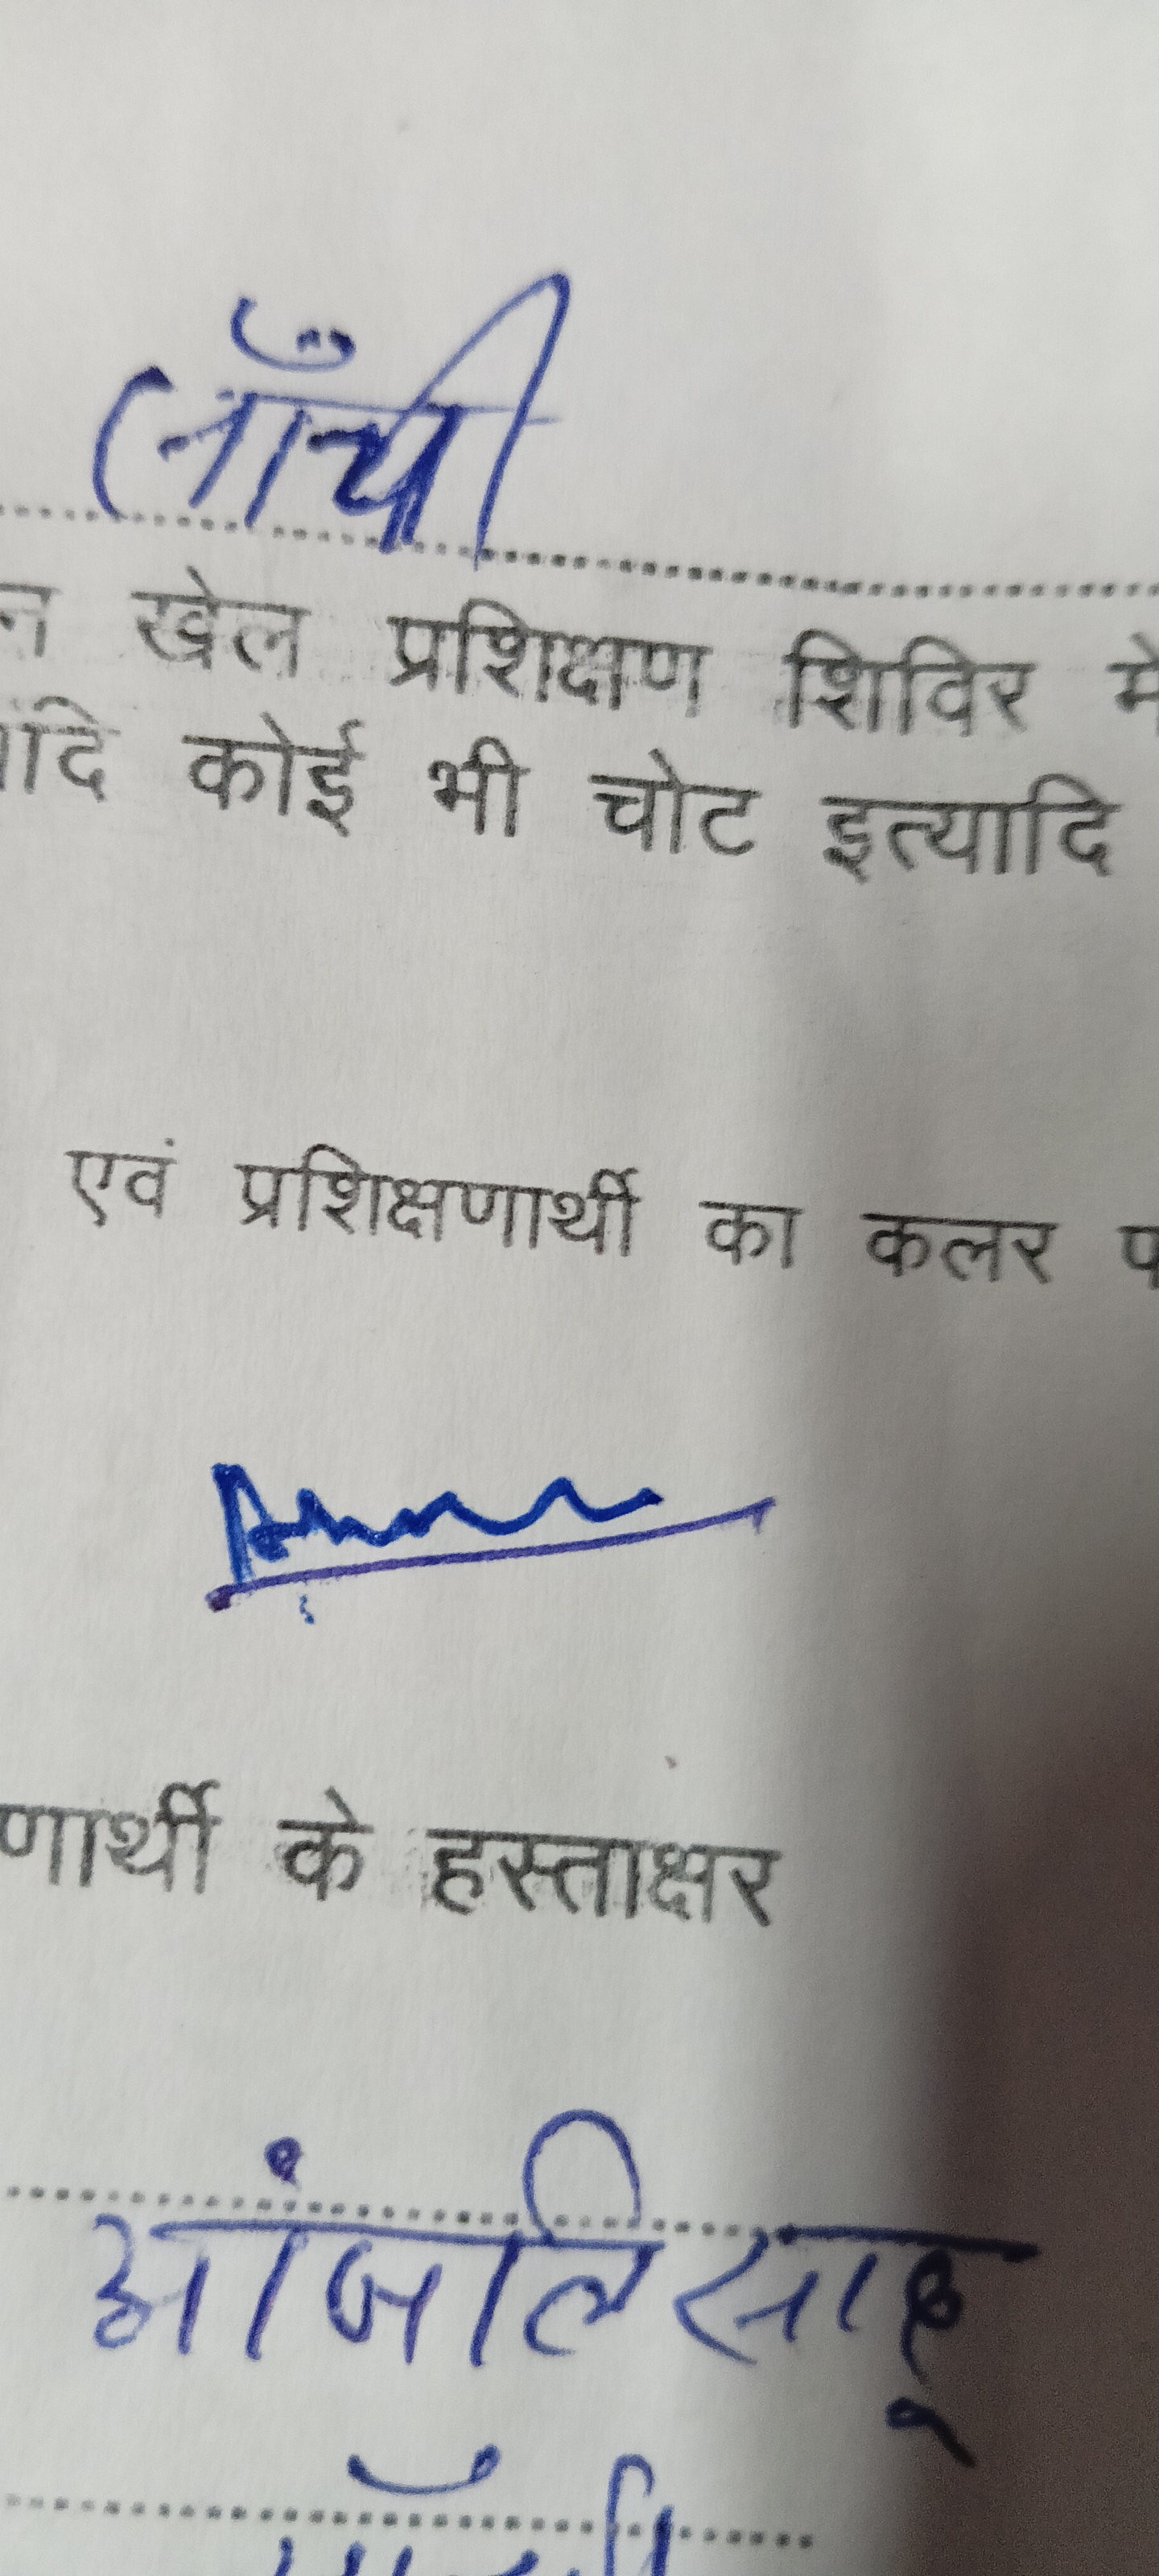 राँची
न खेल प्रशिक्षण शिविर में
दि कोई भी चोट इत्यादि
एवं प्रशिक्षणार्थी का कलर
णार्थी के हस्ताक्षर
आंजलि साहू